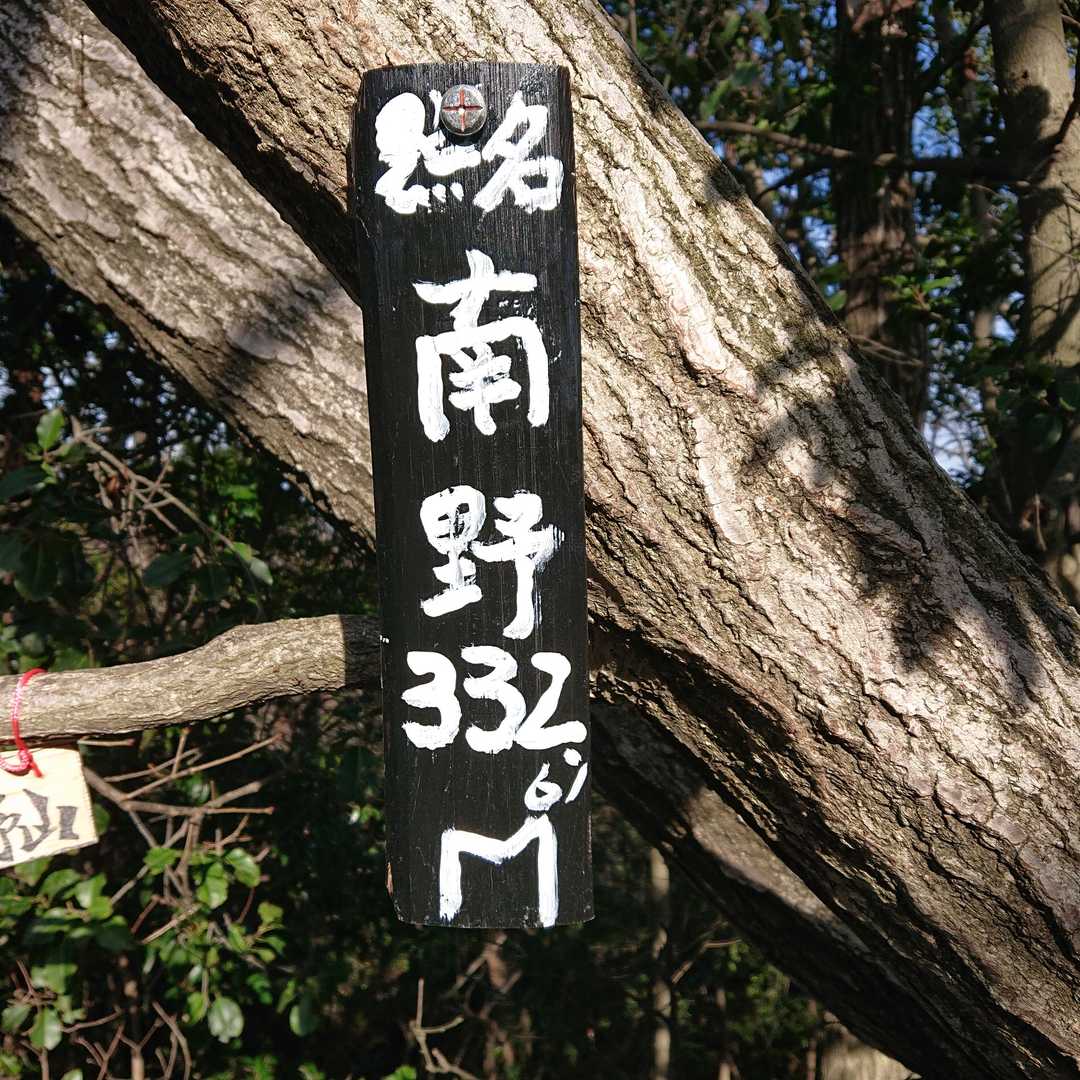 点名
南
野
332
.61
M
山